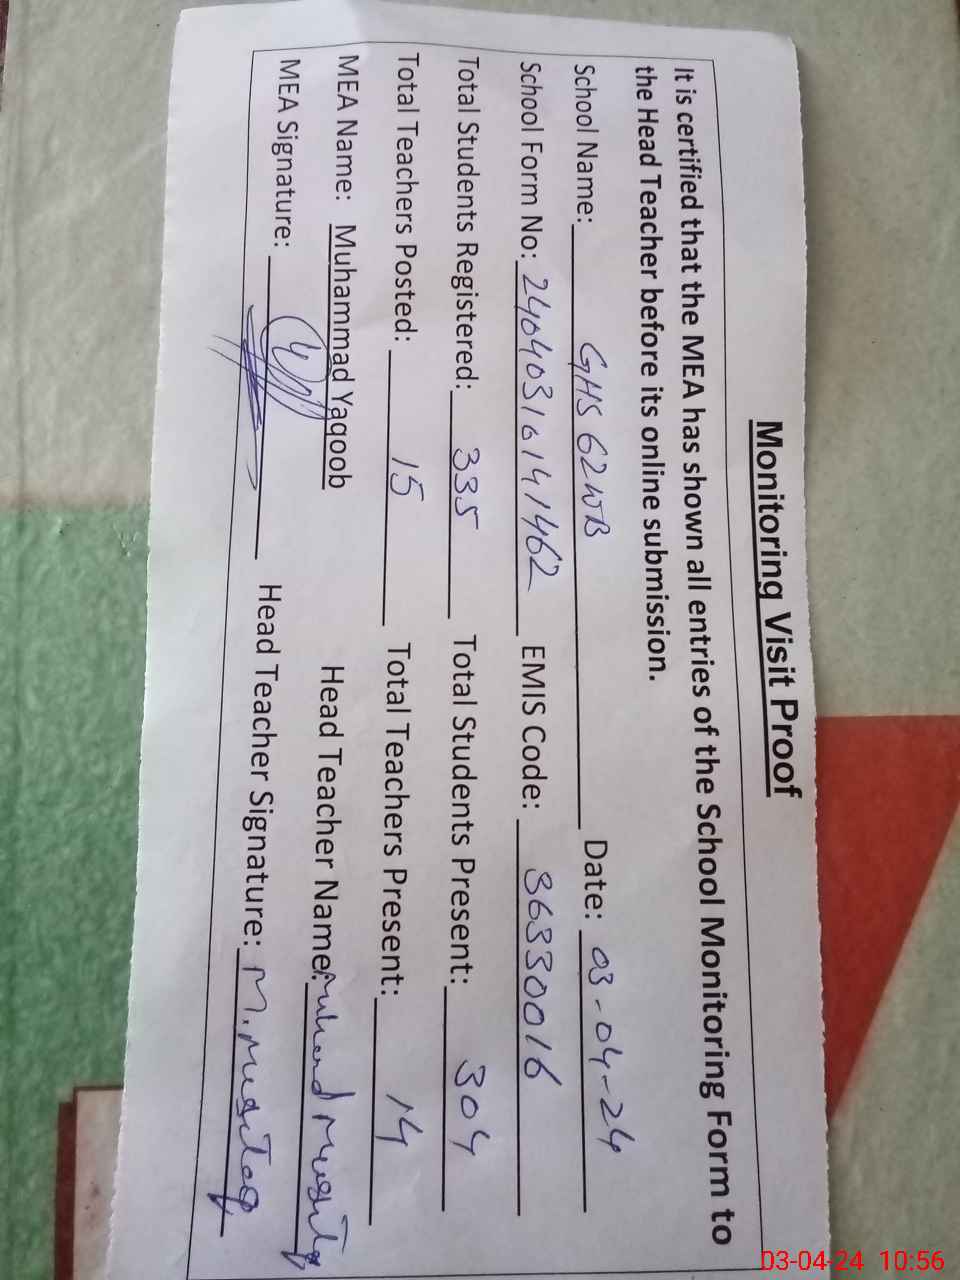 Monitoring Visit Proof
It is certified that the MEA has shown all entries of the School Monitoring Form to
the Head Teacher before its online submission.
School Name: GHS 62WB Date: 03-04-24
School Form No: 2404031014 1462 EMIS Code: 36330016
Total Students Registered: 335 Total Students Present: 304
Total Teachers Posted: 15 Total Teachers Present: 14
MEA Name: Muhammad Yaqoob Head Teacher Name:
MEA Signature: Head Teacher Signature: M. Mushtaq
03-04-24 10:56